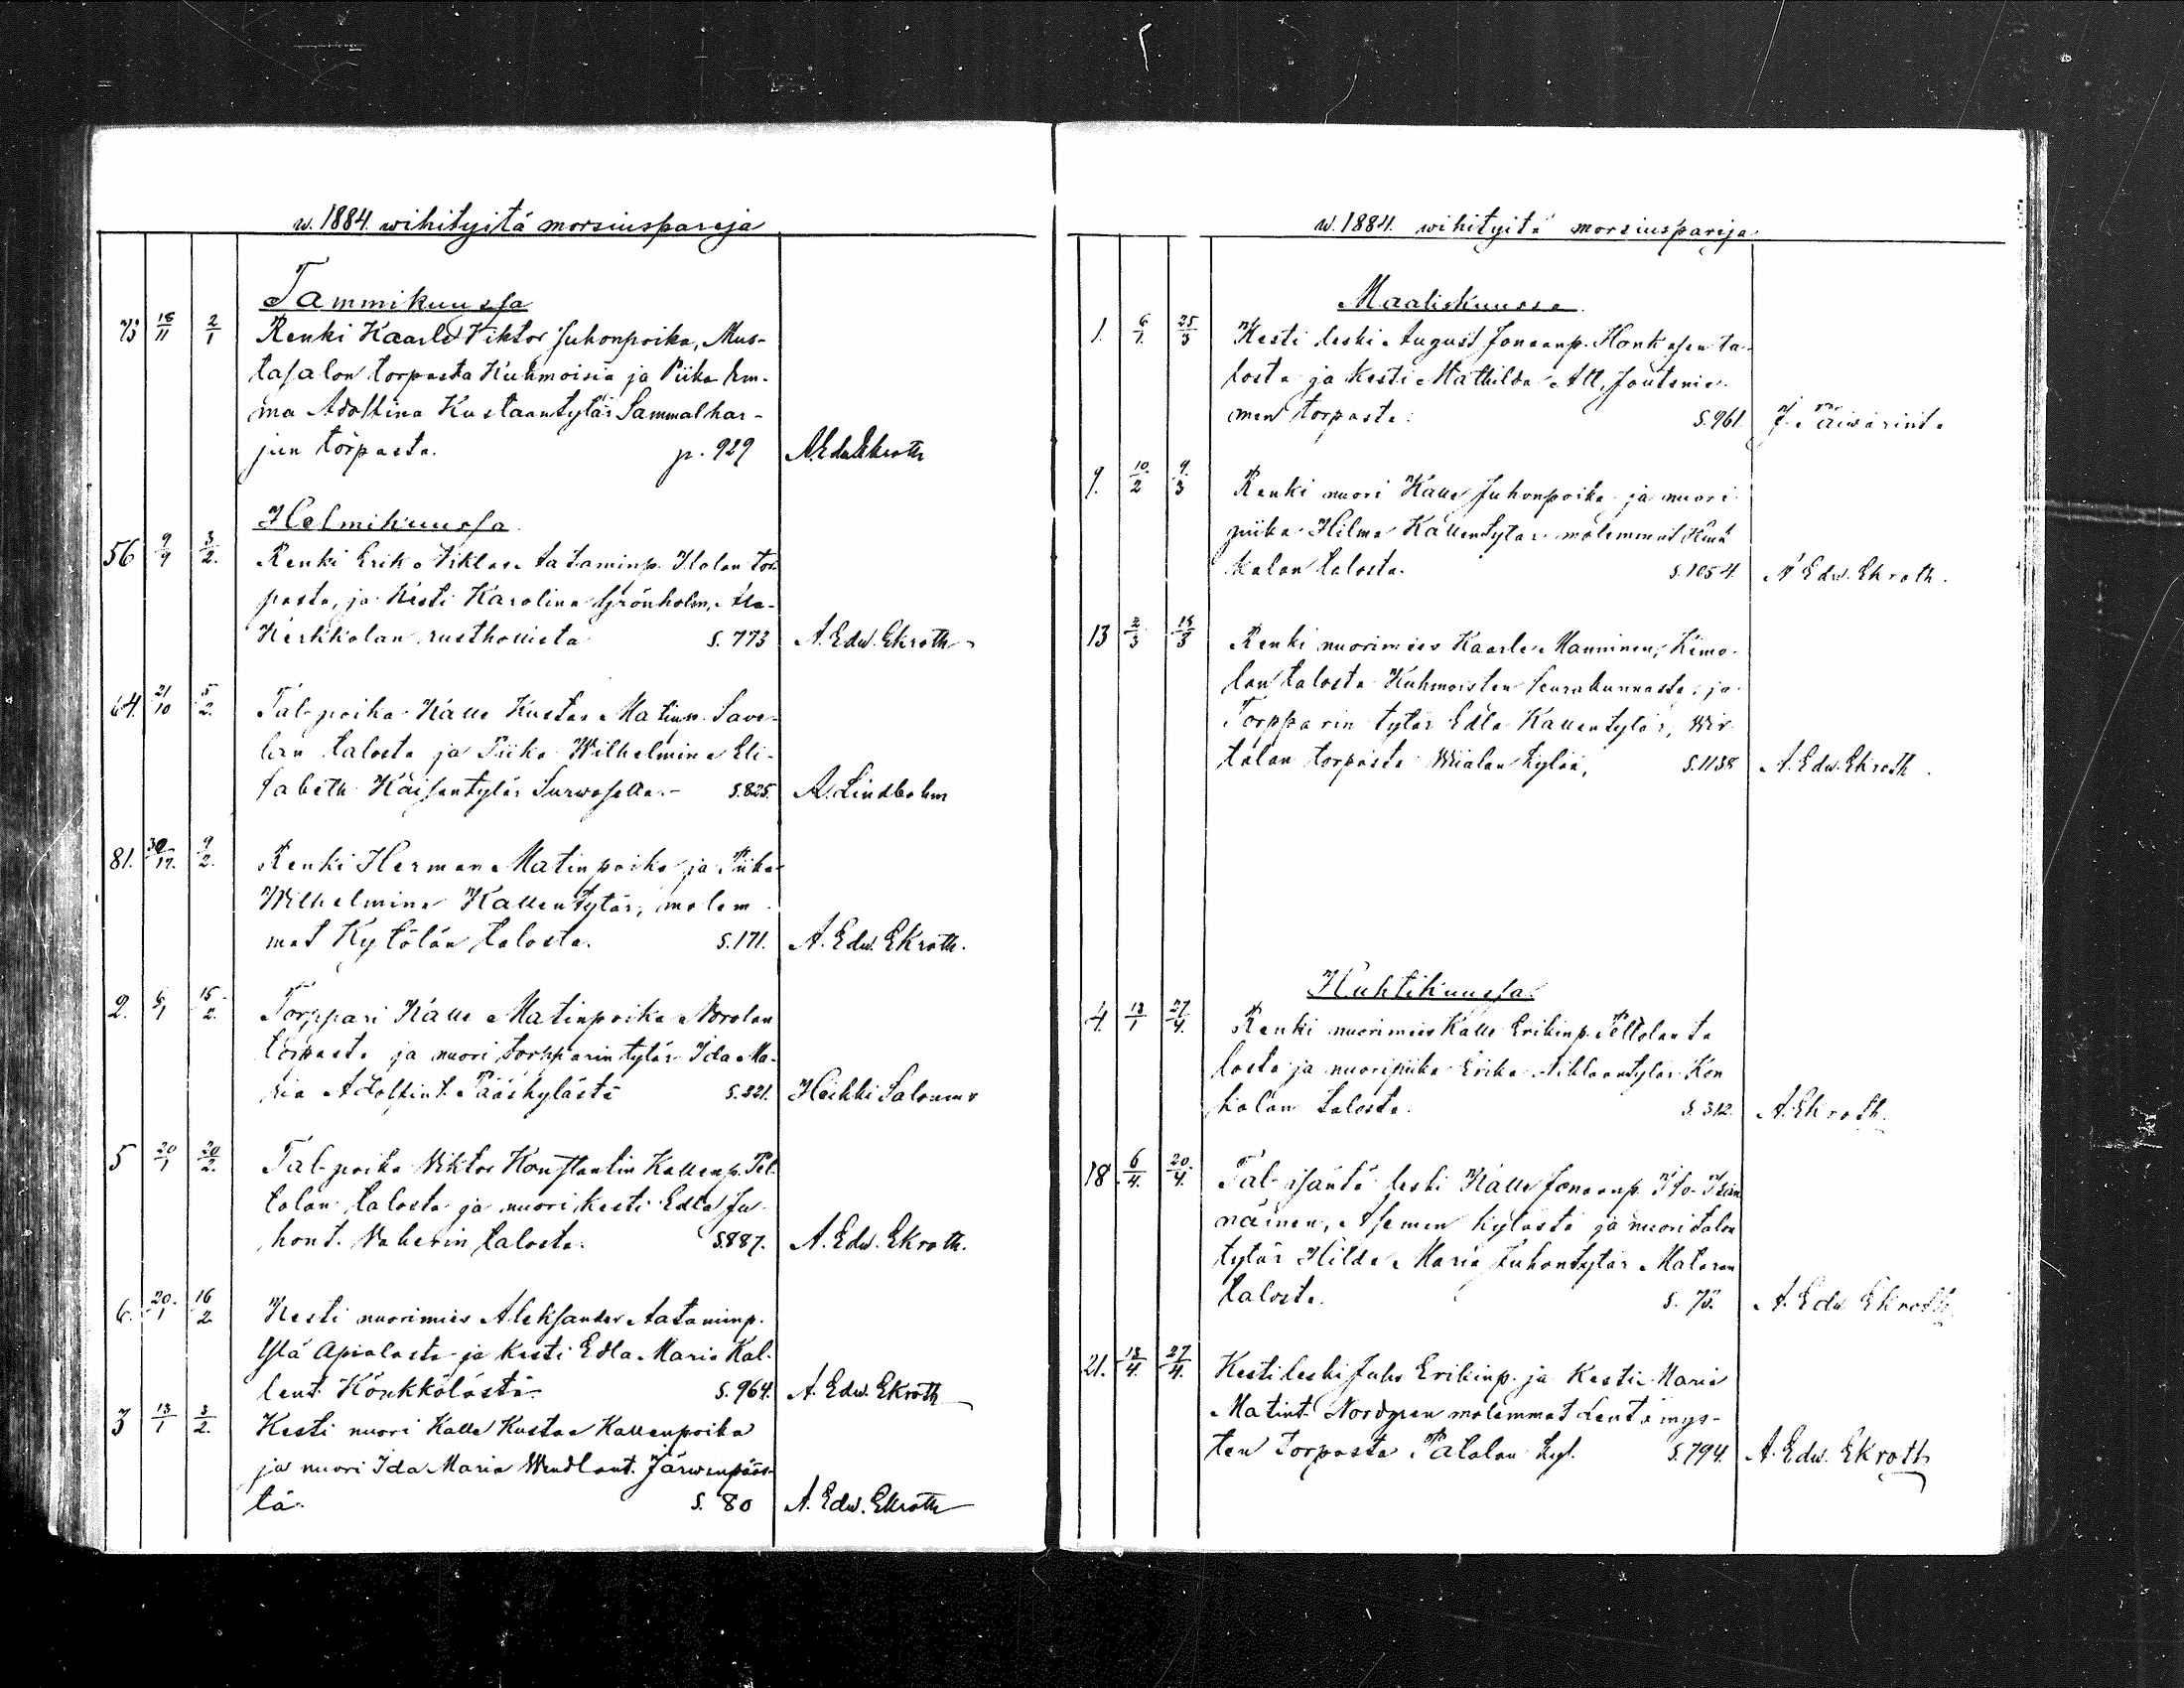 w. 1884. wihityitä morsiuspareja
Tammikuussa
73 18/11 2/1 Renki Kaarle Viktor Juhonpoika, Mus-
tasalon torpasta Kuhmoisia ja Piika Em-
ma Adolfina Kustaantytär Sammalhar-
jun torpasta. p. 929 A. Edw. Ekroth
Helmikuussa
56 9/9 3/2. Renki Erik Niklas Aataminp. Ilolan tor-
pasta, ja Kesti Karolina Grönholm, Ala-
Kerkkolan rusthollista S. 773 A. Edw. Ekroth
64. 21/10 5/2. Tal-poika Kalle Kustaa Matinp. Save-
lan talosta ja Piika Wilhelmina Eli-
sabeth Kaisantytär S. 825. A. Lindbohm
81. 30/12. 9/2. Renki Herman Matinpoika ja Piika
Wilhelmina Kallentytär, molem
mat Kytölän talosta. S. 171. A. Edw. Ekroth.
2. 6/1 15/2. Torppari Kalle Matinpoika Norolan
torpasta ja nuori torpparin tytär Ida Ma-
ria Adolfint. Pääskylästä S. 321. Heikki Salonius
5 20/1 20/2. Tal-poika Viktor Konstantin Kallenp. Pel-
tolan talosta ja nuori kesti Edla Ju-
hont. Vaherin talosta. S. 887. A. Edw. Ekroth.
6. 20/1 16/2 Kesti nuorimies Aleksander Aataminp.
Ylä Apialasta ja kesti Edla Maria Kal-
lent. Könkkölästä S. 964. A. Edw. Ekroth
3 13/1 3/2. Kesti nuori Kalle Kustaa Kallenpoika
ja nuori Ida Maria Wendlant. Järwenpääs-
tä. S. 80 A. Edw. Ekroth
w. 1884. wihityitä morsiuspareja
Maaliskuussa.
1. 6/1. 25/3 Kesti leski August Joonanp. Honkasen ta-
losta ja kesti Mathilda Alt, Joutsnie-
men torpasta. S. 961. J. Päiwärinta
9. 10/2 9/3 Renki nuori Kalle Juhonpoika ja nuori
piika Hilma Kallentytär molemmat
kalan talosta. S. 1054. A. Edw. Ekroth.
13 2/3 15/3 Renki nuorimies Kaarle Manninen, Kimo-
lan talosta Kuhmoisten seurakunnasta, ja
Torpparin tytär Edla Kallentytär, Wir-
talan torpasta Wialan kylää, S. 1138 A. Edw. Ekroth.
Huhtikuussa.
4. 13/1 27/4. Renki nuorimies Kalle Erikinp. Peltolan ta
losta ja nuoripiika Erika Niklaantytär Kon
kolan talosta. S. 312. A. Ekroth.
18 6/4. 20/4. Tal-isäntä leski Kalle Joonanp. Iso-
näinen, Asemen kylästä ja nuori talon
tytär Hilda Maria Juhontytär Mataran
talosta. S. 75. A. Edw. Ekroth
21. 13/4. 27/4. Kesti leski Juho Erikinp. ja Kesti Maria
Matint. Nordgren molemmat
ten Torpasta Palalan kyl. S. 794. A. Edw. Ekroth